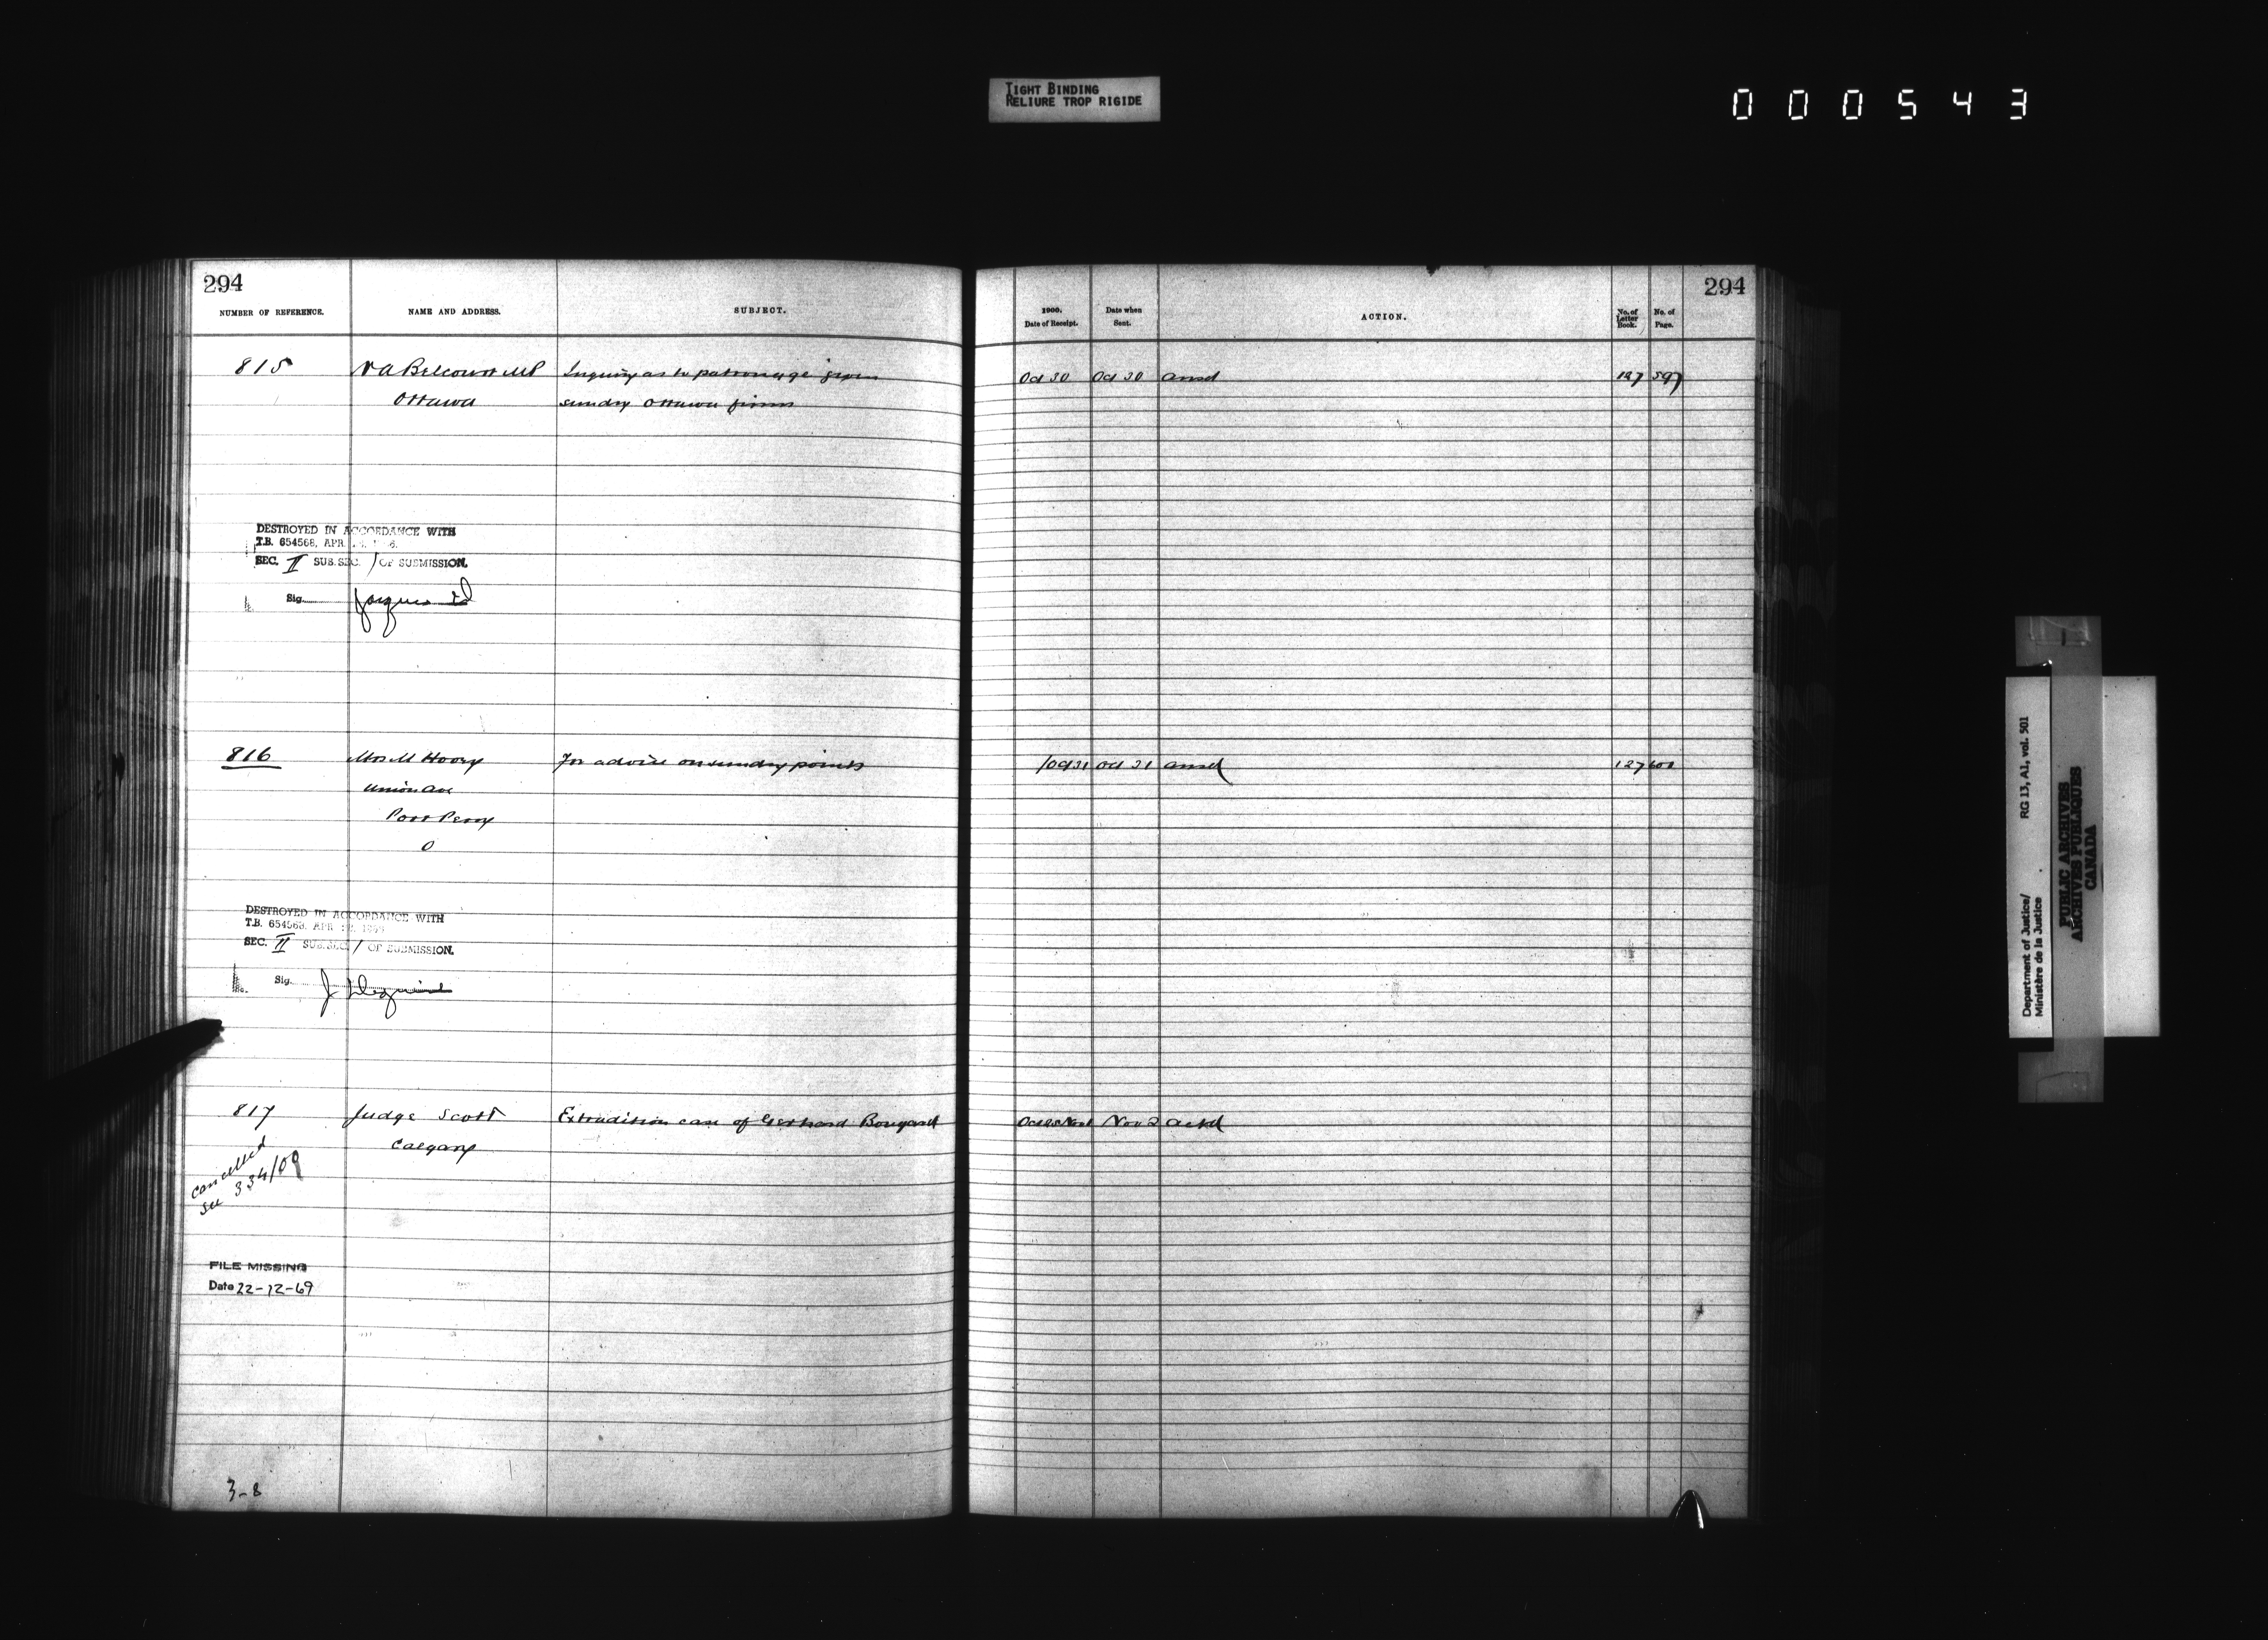 TIGHT BINDING
RELIURE TROP RIGIDE
000543
294
NUMBER OF REFERENCE. NAME AND ADDRESS. SUBJECT.
1900. Date of Receipt. Date when Sent. ACTION. No. of Letter Book. No. of Page.
294
815 N A Belcourt MP Inquiry as to patronage given Oct 30 Oct 30 ansd 127 597
Ottawa sundry Ottawa firms
DESTROYED IN ACCORDANCE WITH
T.B. 654568, APR.
SEC. II SUB.SEC. / OF SUBMISSION.
Sig.
816 Mrs M For advice on sundry points Oct 31 Oct 31 ansd 127 600
Union Ave
Port Perry
O
DESTROYED IN ACCORDANCE WITH
T.B. 654568, APR
SEC. II SUB.SEC. / OF SUBMISSION.
Sig.
817 Judge Scott Extradition case of Gerhard Nov 2 ackd
Calgary
cancelled
see 334/09
FILE MISSING
Date 22-12-69
3-8
Department of Justice/ RG 13, A1, vol. 501
Ministère de la Justice
PUBLIC ARCHIVES
ARCHIVES PUBLIQUES
CANADA